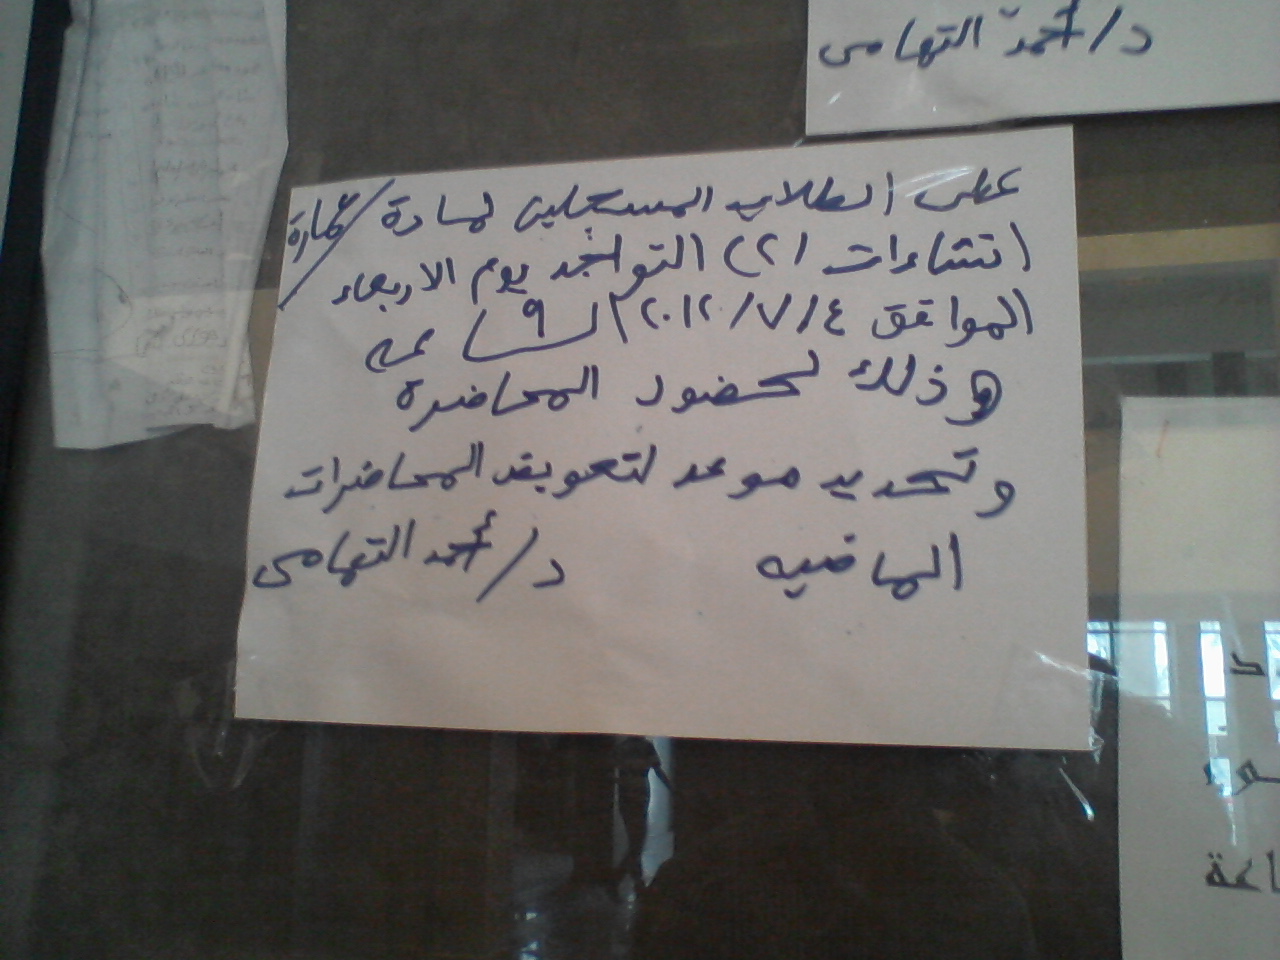 د/ أحمد التهامى
على الطلاب المسجلين لمادة / عمارة
انشاءات (٢) التواجد يوم الاربعاء
الموافق ٢٠١٢/٧/٤ الساعه ٩
وذلك لحضور المحاضرة
وتحديد موعد لتعويض المحاضرات
الماضيه د/ أحمد التهامى
اعة